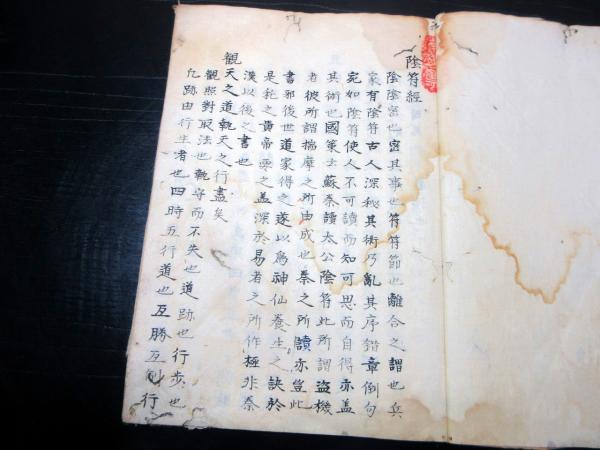 陰符經
陰陰密也密其事也符符節也離合之謂也兵
家有陰符古人深秘其術乃亂其序錯章倒句
宛如陰符使人不可讀而知可思而自得亦蓋
其術也國策云蘇秦讀太公陰符此所謂盜機
者彼所謂揣摩之所由成也秦之所讀亦豈此
書邪後世道家得之遂以為神仙養生之訣於
是托之黃帝要之蓋深於易者之所作極非秦
漢以後之書也
觀天之道執天之行盡矣
觀照對取法也執守而不失也道跡也行步也
凡跡由行生者也四時五行道也互勝互 行